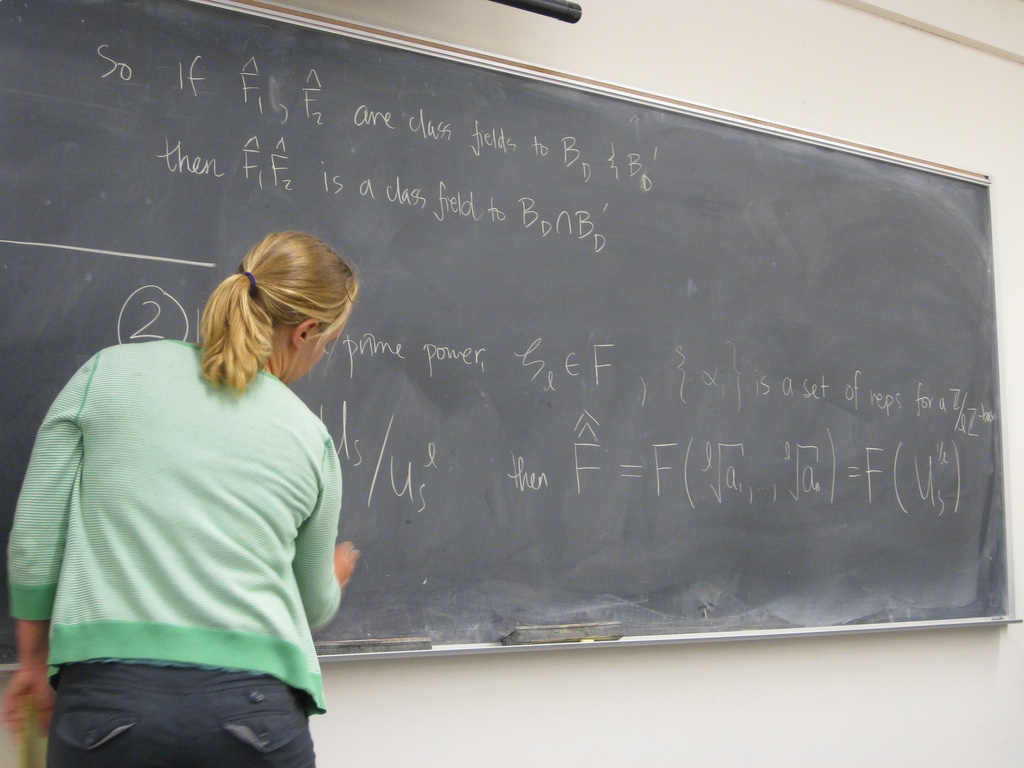 So if F̂₁, F̂₂ are class fields to B_D & B'_D
then F̂₁F̂₂ is a class field to B_D ∩ B'_D
② prime power, ζ_ℓ ∈ F, {αᵢ} is a set of reps for a ℤ/ℓℤ-
/U_s^ℓ then F̂̂ = F(ℓ√a₁, , ℓ√aₙ) = F(U_s^{1/ℓ})